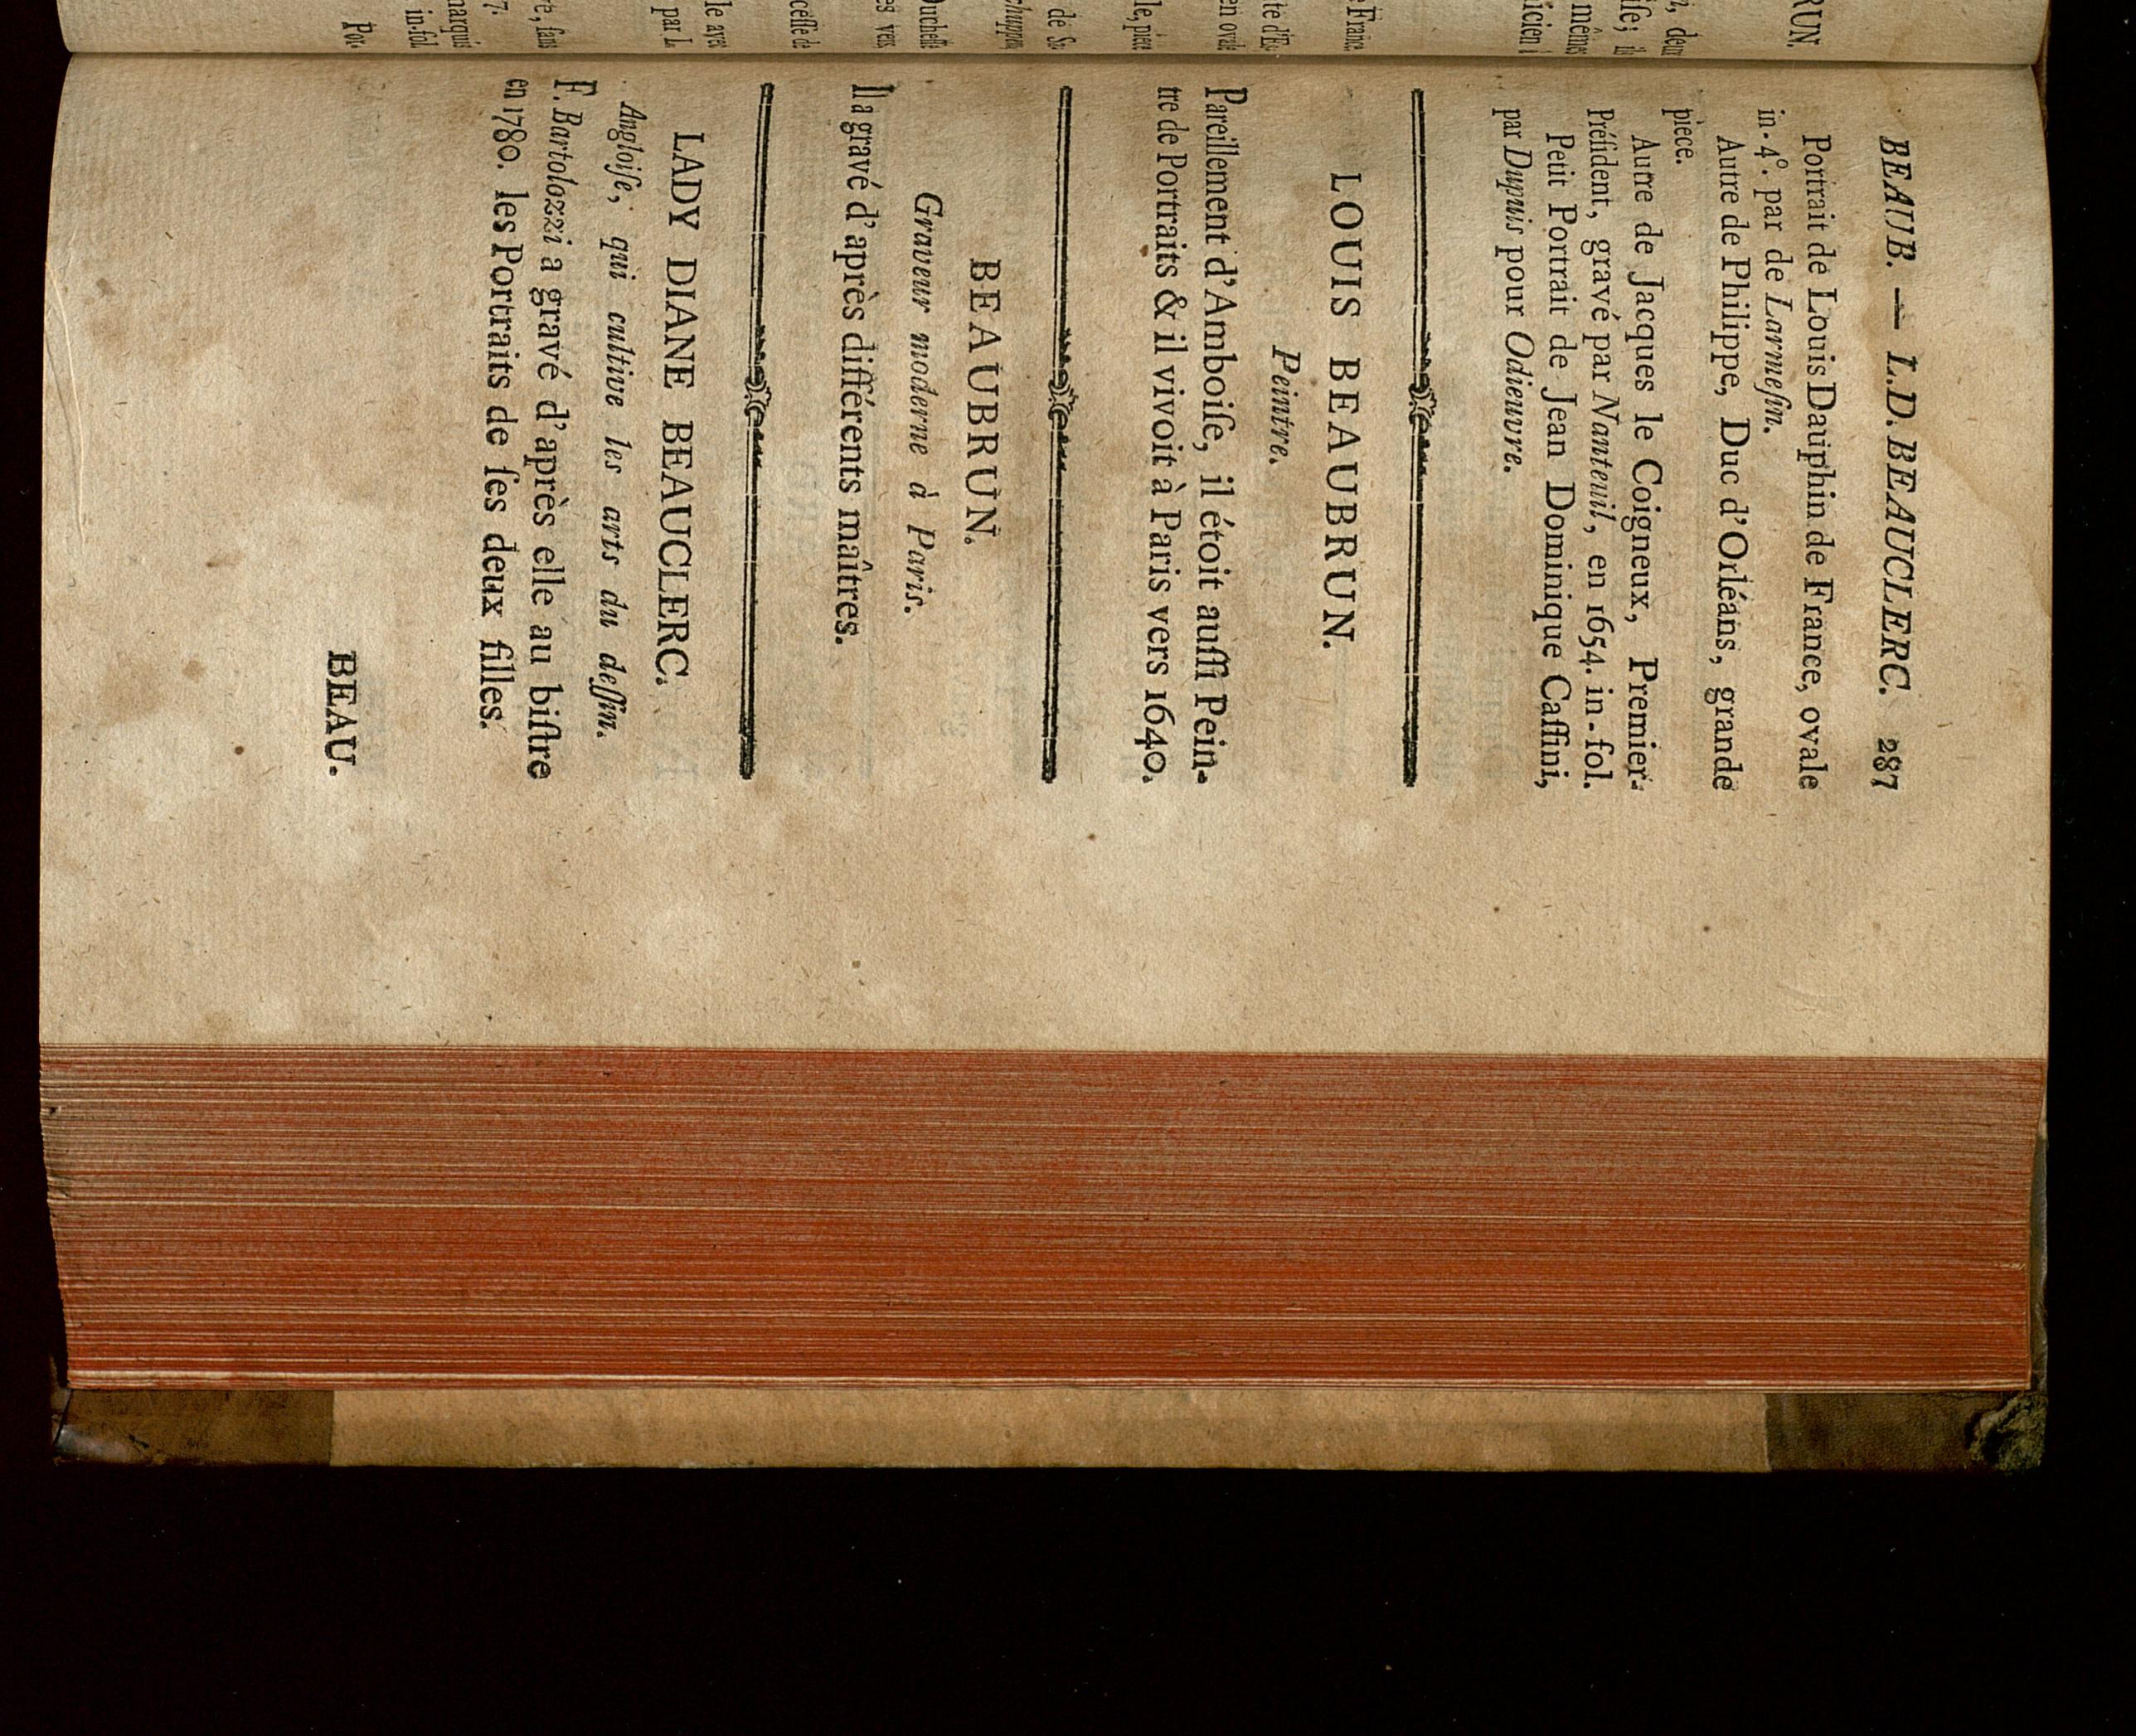 BEAUB. — L.D. BEAUCLERC. 287
Portrait de Louis Dauphin de France, ovale
in-4°. par de Larmeſin.
Autre de Philippe, Duc d'Orléans, grande
pièce.
Autre de Jacques le Coigneux, Premier-
Préſident, gravé par Nanteuil, en 1654. in-fol.
Petit Portrait de Jean Dominique Caſſini,
par Dupuis pour Odieuvre.
LOUIS BEAUBRUN.
Peintre.
Pareillement d'Amboiſe, il étoit auſſi Pein-
tre de Portraits & il vivoit à Paris vers 1640.
BEAUBRUN.
Graveur moderne à Paris.
Il a gravé d'après différents maîtres.
LADY DIANE BEAUCLERC.
Angloiſe, qui cultive les arts du deſſin.
F. Bartolozzi a gravé d'après elle au biſtre
en 1780. les Portraits de ſes deux filles.
BEAU.